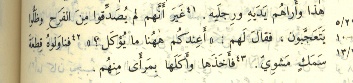 هٰذَا وَأَرَاهُم يَدَيْهِ وَرِجلَيه. ⁴¹ غَيرَ أَنَّهُم لَم يُصَدِّقُوا مِنَ الفَرَحِ وَظَلُّوا
يَتَعَجَّبُونَ، فَقَالَ لَهُم: «أَعِندَكُم هٰهُنَا مَا يُؤكَل؟» ⁴² فَنَاوَلُوهُ قِطعَةَ
سَمَكٍ مَشوِيٍّ. ⁴³ فَأَخَذَهَا وَأَكَلَهَا بِمَرأًى مِنهُم.